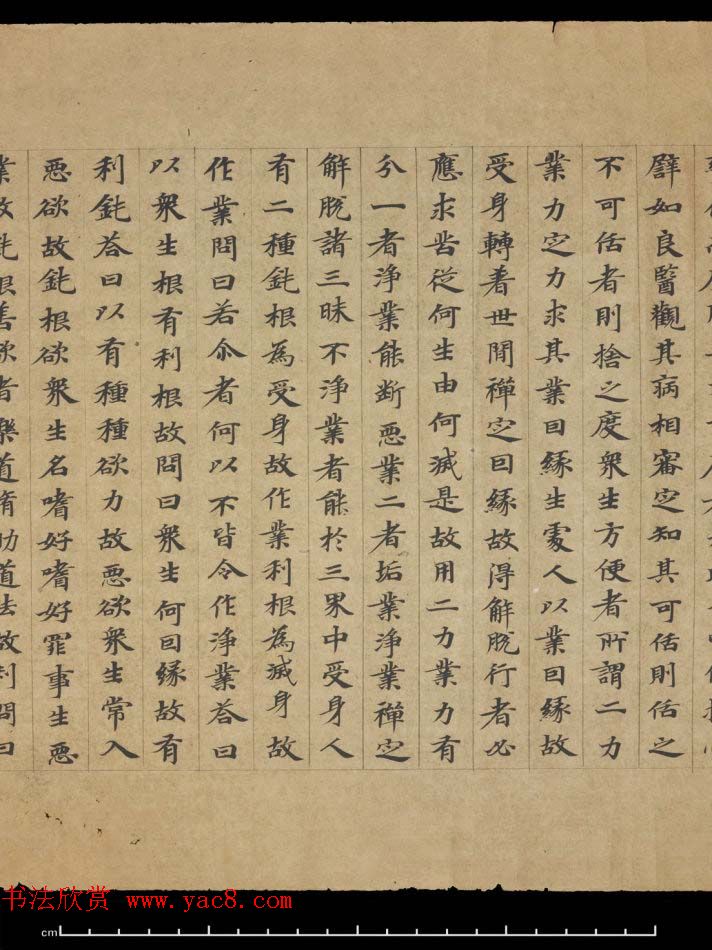 譬如良醫觀其病相審定知其可活則活之
不可活者則捨之度衆生方便者所謂二力
業力定力求其業因緣生處人以業因緣故
受身轉著世間禪定因緣故得解脫行者必
應求苦從何生由何滅是故用二力業力有
分一者淨業能斷惡業二者垢業淨業禪定
解脫諸三昧不淨業者能於三界中受身人
有二種鈍根為受身故作業利根為滅身故
作業問曰若尒者何以不皆令作淨業荅曰
以衆生根有利根故問曰衆生何因緣故有
利鈍荅曰以有種種欲力故惡欲衆生常入
惡欲故鈍根欲衆生名嗜好嗜好罪事生惡
業故鈍根善欲者樂道脩助道法故利問曰
书法欣赏 www.yac8.com
cm